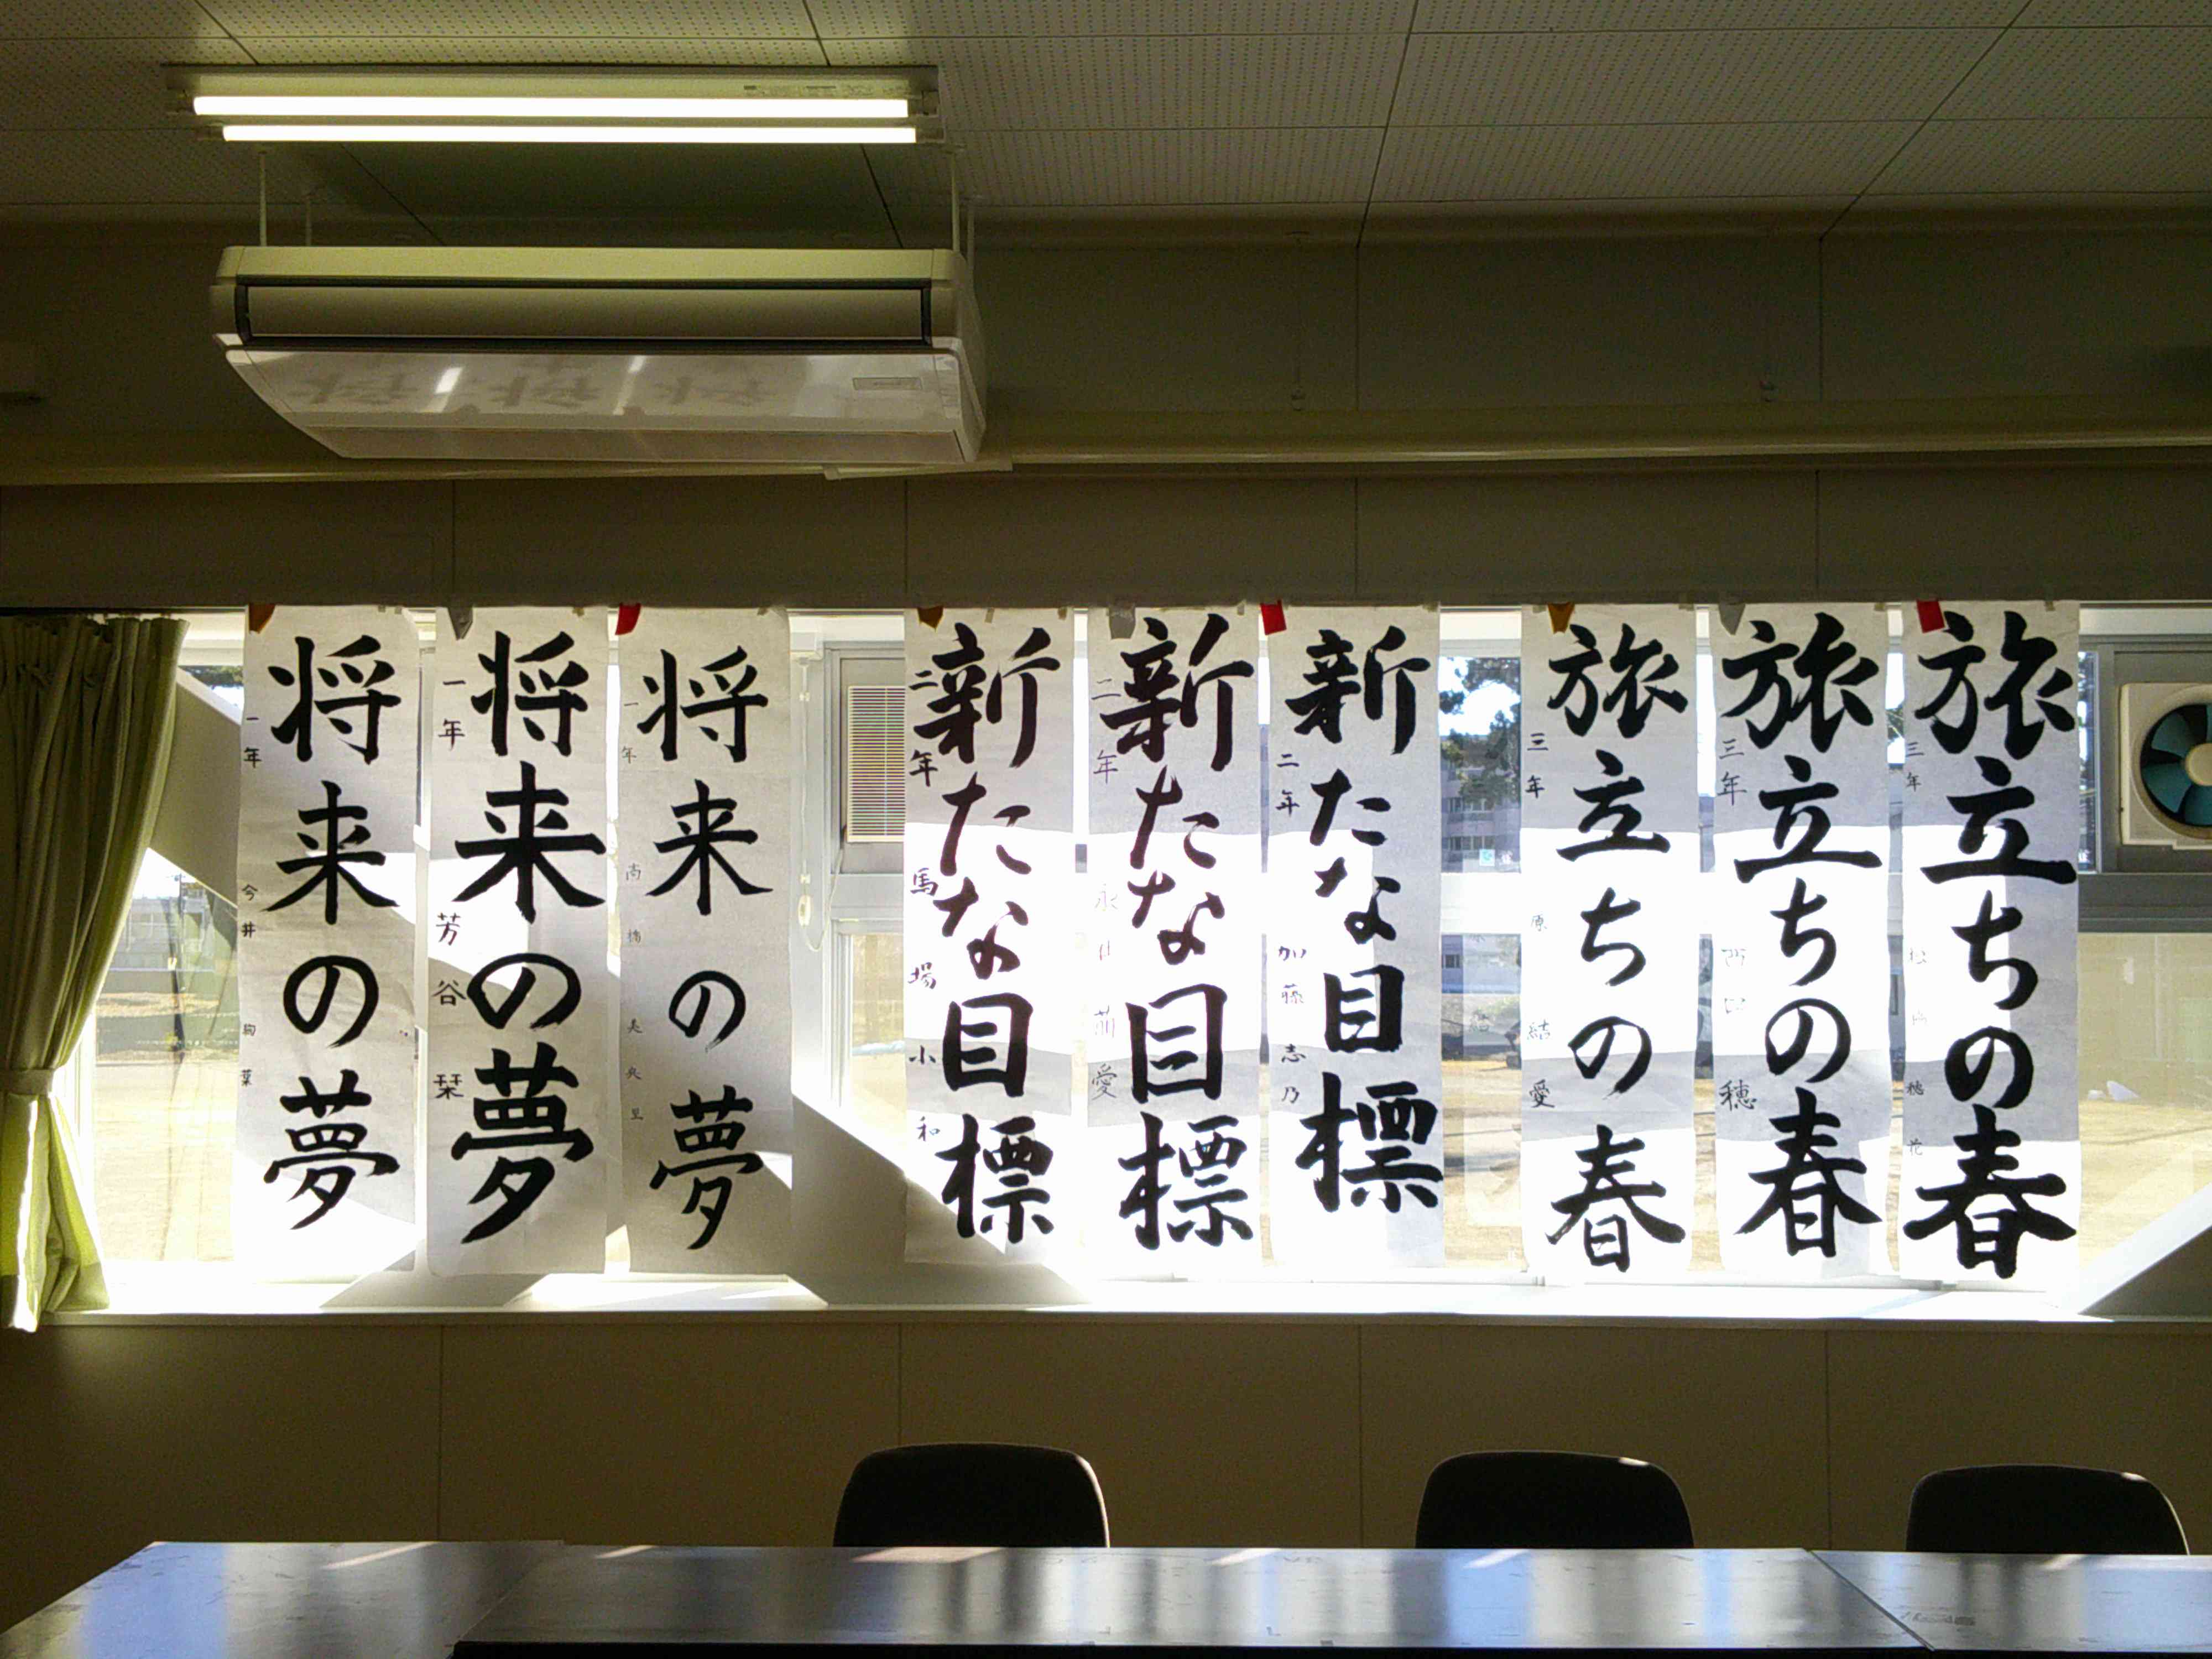 旅立ちの春
三年
穂花
旅立ちの春
三年
穂
旅立ちの春
三年 原 結愛
新たな目標
二年 加藤志乃
新たな目標
二年 永井萌愛
新たな目標
二年 馬場小和
将来の夢
一年
将来の夢
一年 芳谷栞
将来の夢
一年 今井
葉